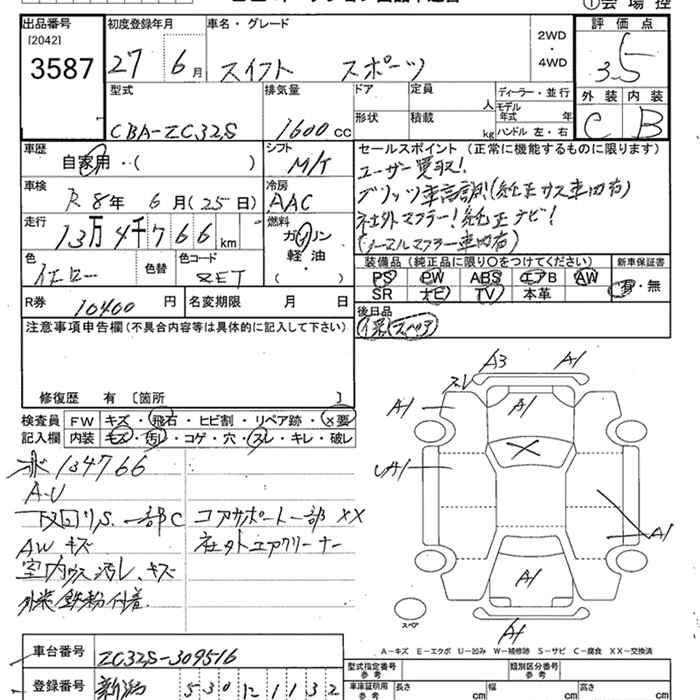 ①会場控
出品番号 初度登録年月 車名・グレード 評価点
[2042] 2WD
3587 27 6月 スイフト スポーツ ・4WD 3.5
型式 排気量 ドア 定員 ディーラー・並行 外装 内装
人 モデル年式 年
CBA-ZC32S 1600cc 形状 積載 kg ハンドル 左・右 C B
車歴 シフト セールスポイント (正常に機能するものに限ります)
自家用・( ) M/T ユーザー買取!
車検 冷房 ブリッツ車高調(純正サス車内有)
R8年 6月(25日) AAC 社外マフラー!純正ナビ!
走行 燃料 (ノーマルマフラー車内有)
13万4千766km ガソリン
色 色替 色コード 軽油 装備品(純正品に限り〇をつけてください) 新車保証書
イエロー ZET ( ) PS PW ABS エアB AW 有・無
SR ナビ TV 本革
R券 10400円 名変期限 月 日 後日品
注意事項申告欄(不具合内容等は具体的に記入して下さい)
修復歴 有 [箇所 ]
検査員 FW キズ・飛石・ヒビ割・リペア跡・×要
記入欄 内装 キズ・汚レ・コゲ・穴・スレ・キレ・破レ
A3 A1
スレ
A1 A1
×
A1
A1
A1
A1
スペア
134766
A・U
下回りS.一部C コアサポート一部XX
AWキズ 社外エアクリーナー
室内ウス汚レ、キズ
外装鉄粉付着
A-キズ E-エクボ U-凹み W-補修跡 S-サビ C-腐食 XX-交換済
車台番号 ZC32S-309516 型式指定番号 参考 類別区分番号 参考
登録番号 新潟 530 1132 車庫証明用 参考 長さ cm 幅 cm 高さ cm